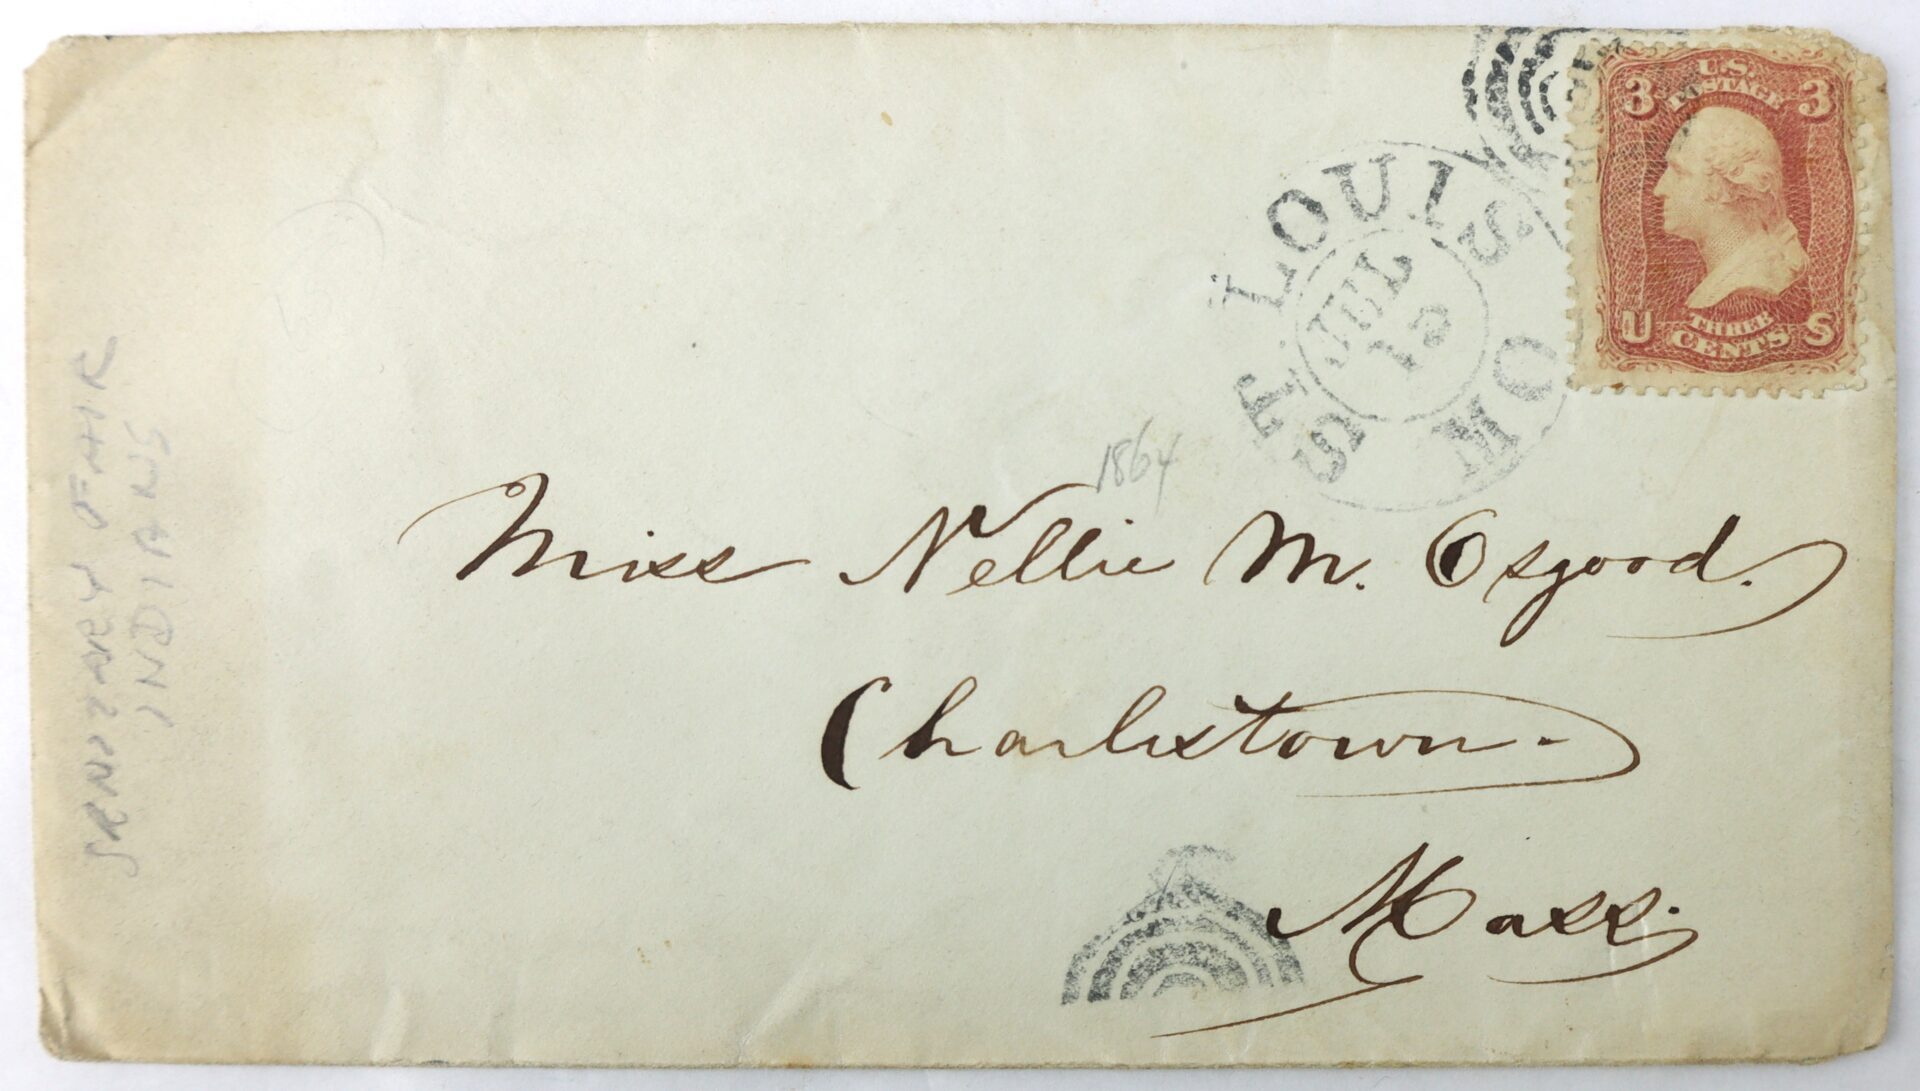 U.S.
POSTAGE
3 3
THREE
CENTS
U S
ST. LOUIS MO
JUL
1864
Miss Nellie M. Osgood.
Charlestown.
Mass.
INDIANS